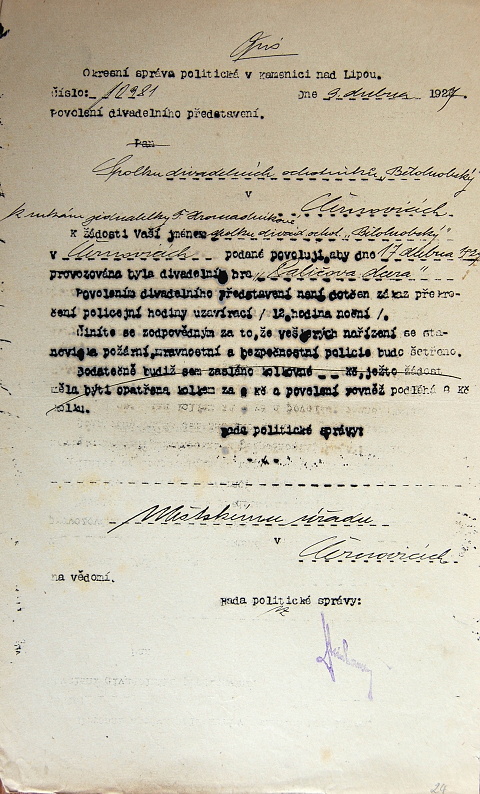 Opis
Okresní správa politická v Kamenici nad Lipou.
Číslo: 10981 Dne 9. dubna 1927.
Povolení divadelního představení.
Pan
Spolku divadelních ochotníků „Bělohobský"
v Černovicích
k rukám jednatelky
K žádosti Vaší jménem spolku divad. ochot. „Bělohobský"
v Černovicích podané povoluji, aby dne 17. dubna 1927
provozována byla divadelní hra „Paličova dcera"
Povolením divadelního představení není dotčen zákaz překro-
čení policejní hodiny uzavírací / 12.hodina noční /.
Činíte se zodpovědným za to, že veškerých nařízení se sta-
noviska požární, mravnostní a bezpečnostní policie bude šetřeno.
Dodatečně budiž sem zasláno kolkovné -- Kč, ježto žádost
měla býti opatřena kolkem za Kč a povolení rovněž podléhá Kč
kolku.
Rada politické správy:
Městskému úřadu
v
Černovicích
na vědomí.
Rada politické správy:
29